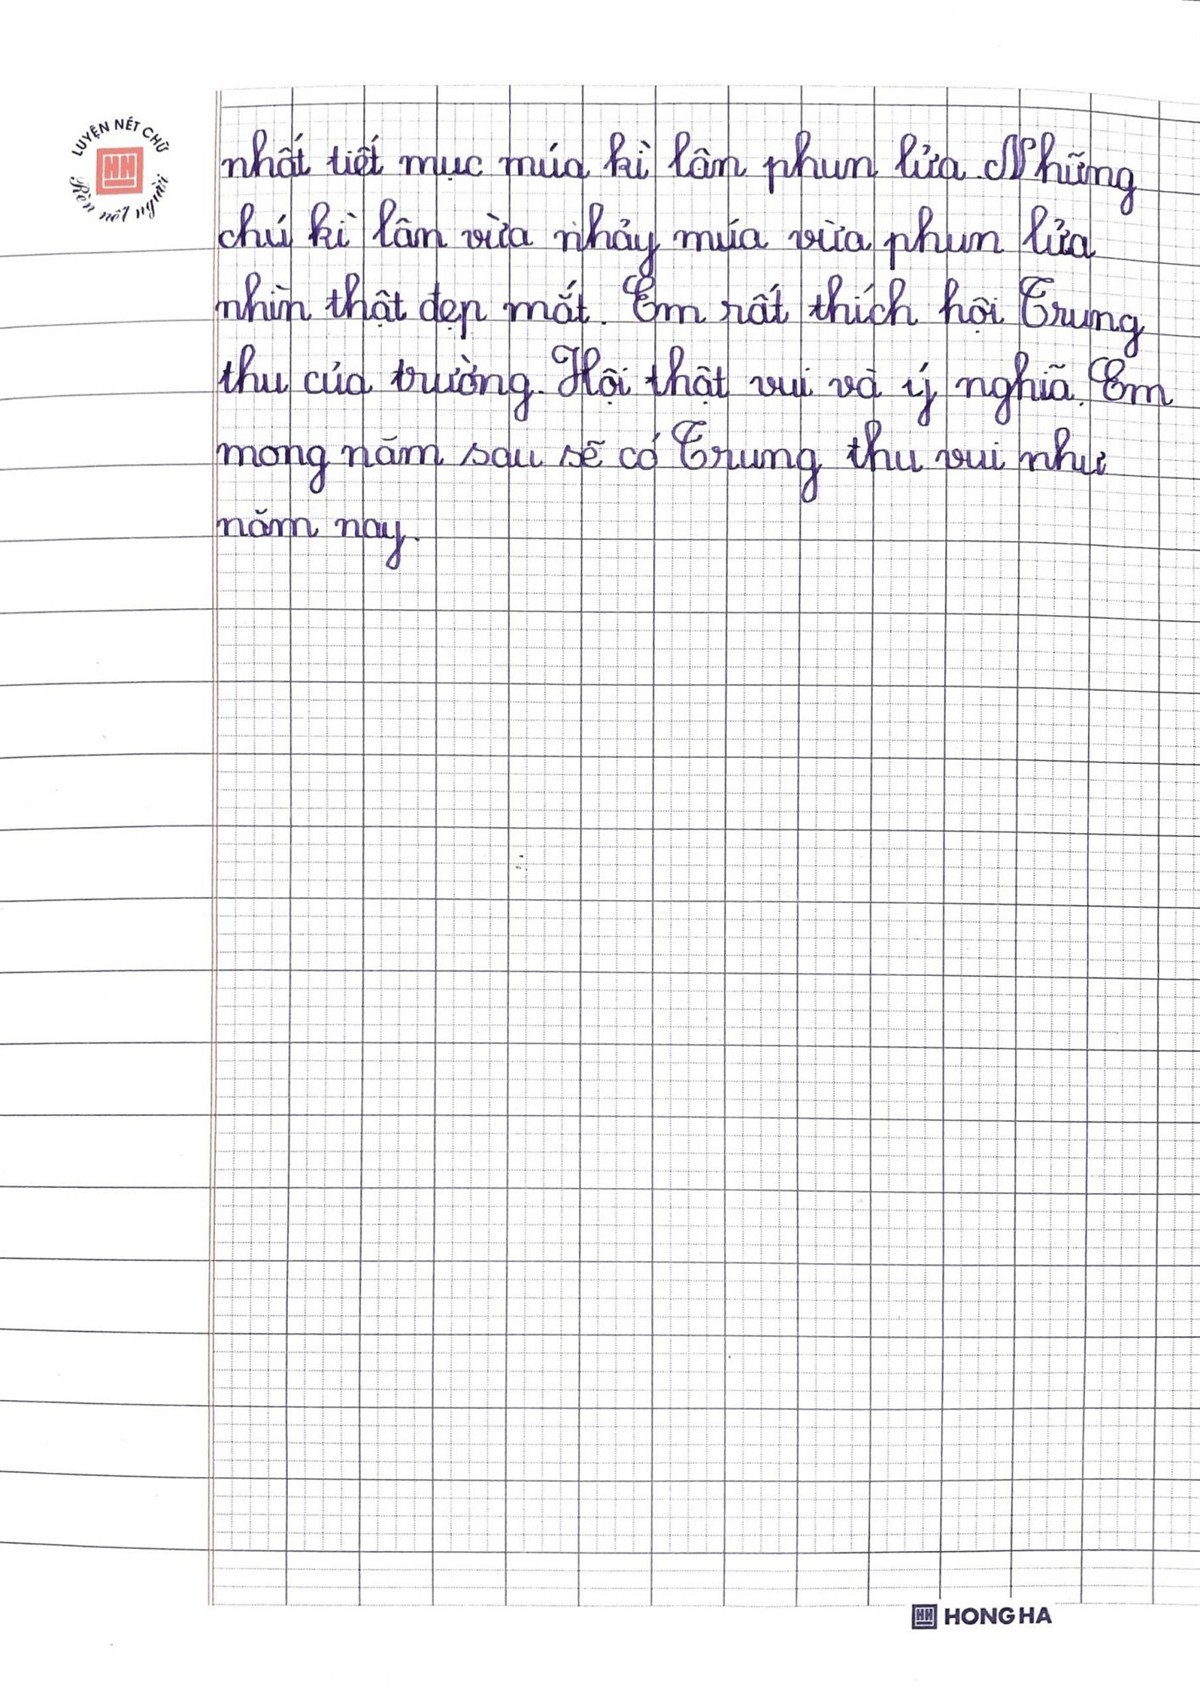 LUYỆN NÉT CHỮ
Rèn nết người
nhất tiết mục múa kì lân phun lửa. Những
chú kì lân vừa nhảy múa vừa phun lửa
nhìn thật đẹp mắt. Em rất thích hội Trung
thu của trường. Hội thật vui và ý nghĩa. Em
mong năm sau sẽ có Trung thu vui như
năm nay.
HONG HA